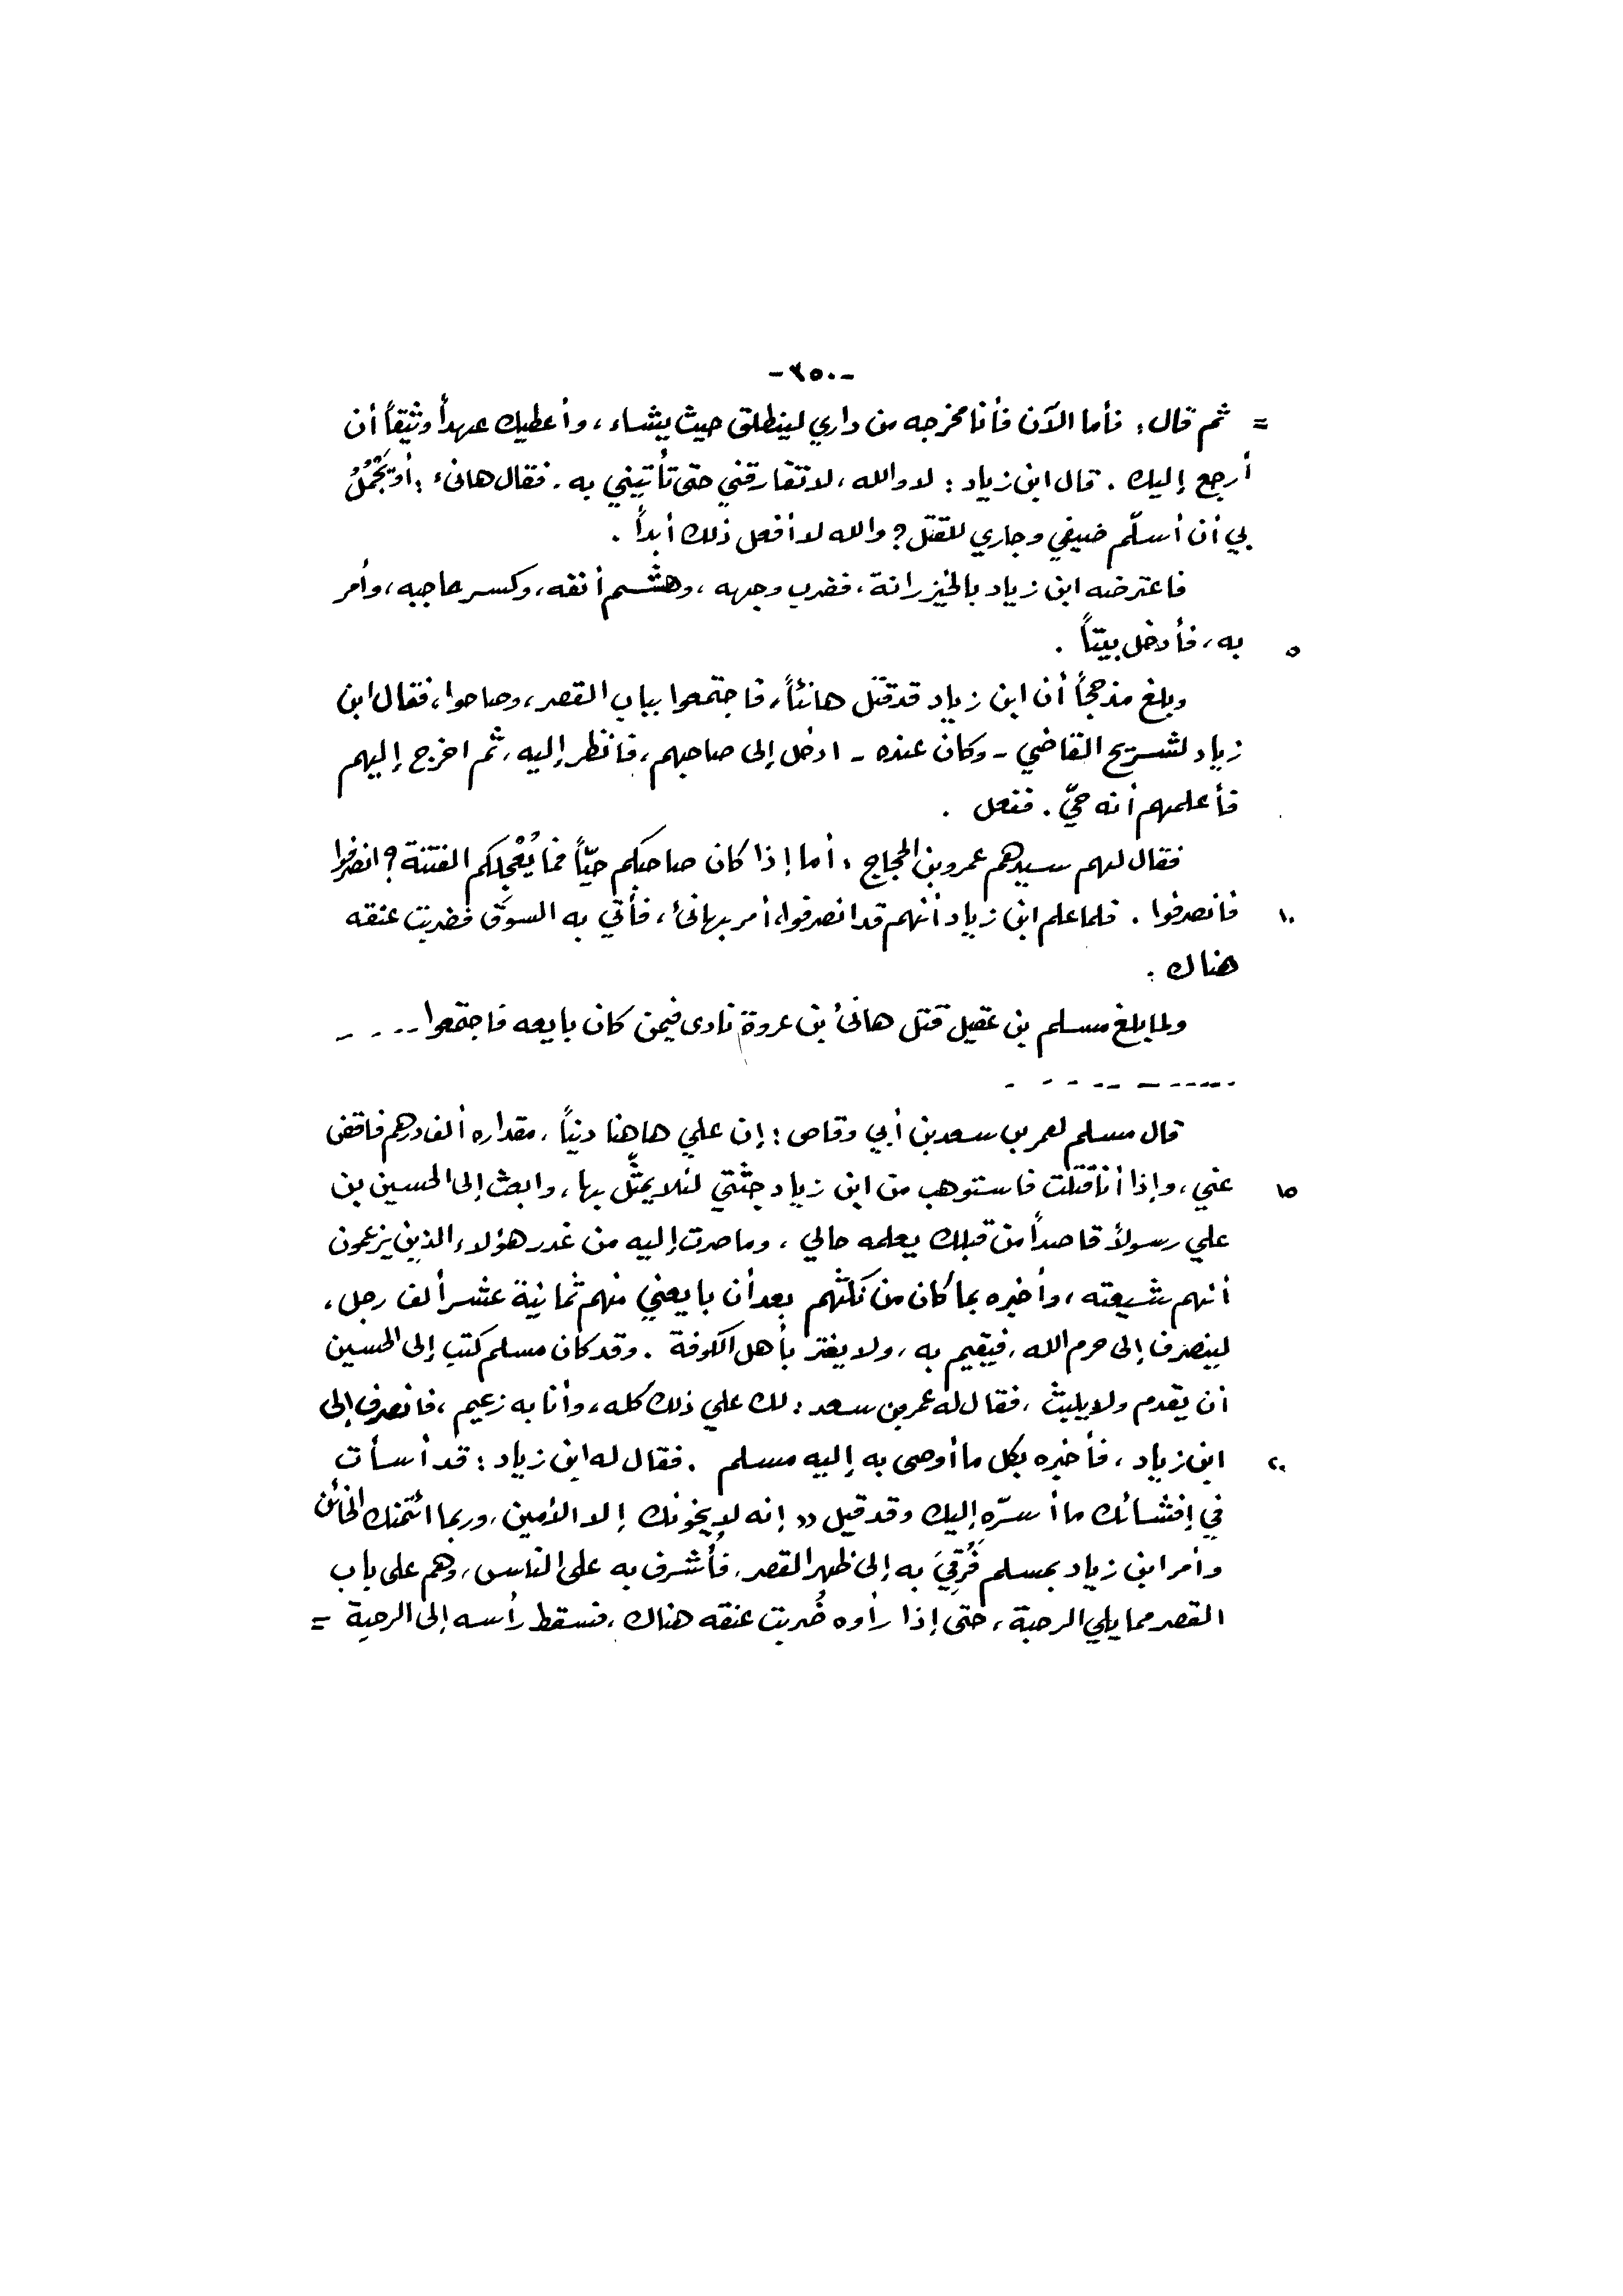 -٢٥٠-
= ثم قال: فأما الآن فأنا مخرجه من داري لينطلق حيث يشاء، وأعطيك عهداً وثيقاً أن
أرجع إليك. قال ابن زياد: لا والله، لا تفارقني حتى تأتيني به. فقال هانىء: أوَيَجْمُلُ
بي أن أسلّم ضيفي وجاري للقتل؟ والله لا أفعل ذلك أبداً.
فاعترضه ابن زياد بالخيزرانة، فضرب وجهه، وهشم أنفه، وكسر حاجبه، وأمر
٥ به، فأدخل بيتاً.
وبلغ مذحجاً أن ابن زياد قد قتل هانئاً، فاجتمعوا بباب القصر، وصاحوا، فقال ابن
زياد لشريح القاضي - وكان عنده - ادخل إلى صاحبهم، فانظر إليه، ثم اخرج إليهم
فأعلمهم أنه حيّ. ففعل.
فقال لهم سيدهم عمرو بن الحجاج: أما إذا كان صاحبكم حيّاً فما يُعْجِلكم الفتنة؟ انصرفوا
١٠ فانصرفوا. فلما علم ابن زياد أنهم قد انصرفوا، أمر بهانئ، فأتي به السوق فضربت عنقه
هناك.
ولما بلغ مسلم بن عقيل قتل هانئ بن عروة نادى فيمن كان بايعه فاجتمعوا ....
...........
قال مسلم لعمر بن سعد بن أبي وقاص: إن علي هاهنا ديناً، مقداره ألف درهم فاقض
١٥ عني، وإذا أنا قتلت فاستوهب من ابن زياد جثتي لئلا يمثّل بها، وابعث إلى الحسين بن
علي رسولاً قاصداً من قبلك يعلمه حالي، وما صرت إليه من غدر هؤلاء الذين يزعمون
أنهم شيعته، وأخبره بما كان من نكثهم بعد أن بايعني منهم ثمانية عشر ألف رجل،
لينصرف إلى حرم الله، فيقيم به، ولا يغتر بأهل الكوفة. وقد كان مسلم كتب إلى الحسين
أن يقدم ولا يلبث، فقال له عمر بن سعد: لك علي ذلك كله، وأنا به زعيم، فانصرف إلى
٢٠ ابن زياد، فأخبره بكل ما أوصى به إليه مسلم. فقال له ابن زياد: قد أسأت
في إفشائك ما أسرّه إليك وقد قيل « إنه لا يخونك إلا الأمين، وربما ائتمنك الخائن
وأمر ابن زياد بمسلم فَرُقِيَ به إلى ظهر القصر، فأُشرف به على الناس، وهم على باب
القصر مما يلي الرحبة، حتى إذا رأوه ضُربت عنقه هناك، فسقط رأسه إلى الرحبة =